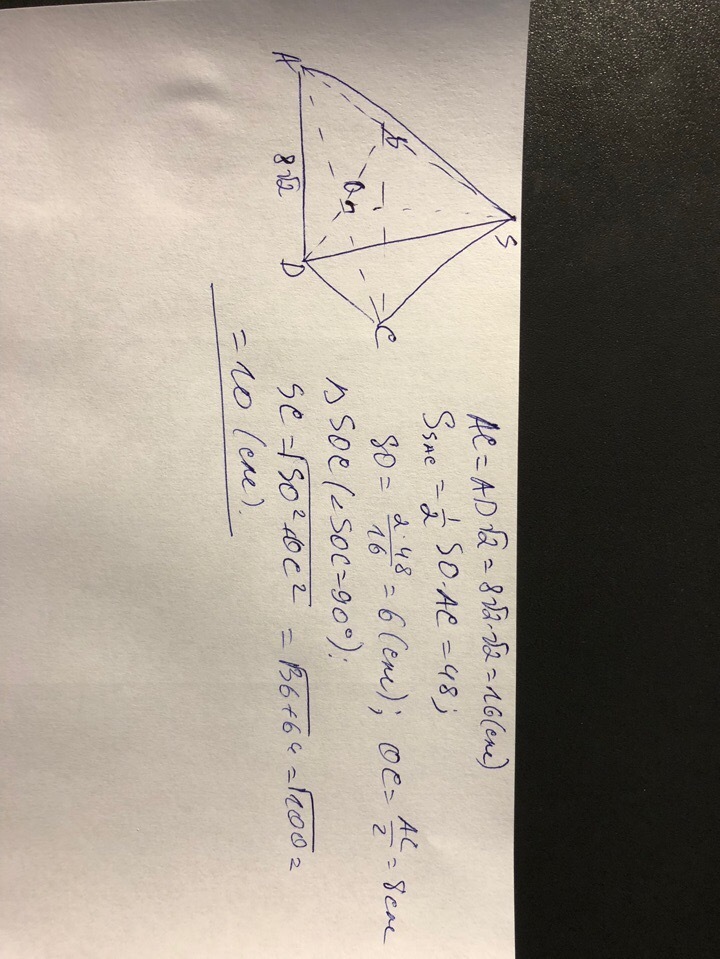 S
A
B
O
C
D
8√2
AC = AD√2 = 8√2·√2 = 16 (см)
S_SAC = 1/2 SO·AC = 48;
SO = 2·48/16 = 6 (см); OC = AC/2 = 8 см
Δ SOC (∠SOC = 90°):
SC = √(SO² + OC²) = √(36+64) = √100 =
= 10 (см).